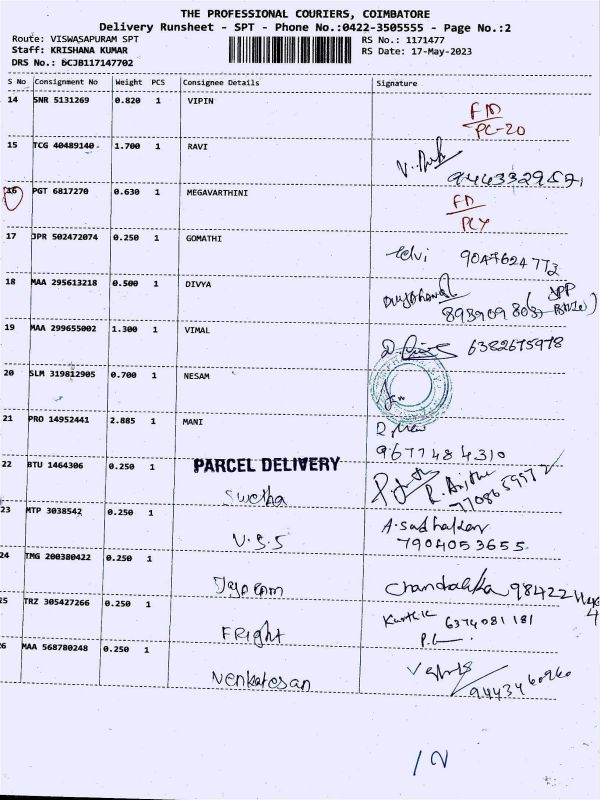 THE PROFESSIONAL COURIERS, COIMBATORE
Delivery Runsheet - SPT - Phone No.:0422-3505555 - Page No.:2
Route: VISWASAPURAM SPT RS No.: 1171477
Staff: KRISHANA KUMAR RS Date: 17-May-2023
DRS No.: DCJB117147702
S No Consignment No Weight PCS Consignee Details Signature
14 SNR 5131269 0.820 1 VIPIN FD
PC-20
15 TCG 40489140 1.700 1 RAVI
9443329571
16 PGT 6817270 0.630 1 MEGAVARTHINI FD
PCY
17 JPR 502472074 0.250 1 GOMATHI Selvi 9047624772
18 MAA 295613218 0.500 1 DIVYA
19 MAA 299655002 1.300 1 VIMAL 6382675978
20 SLM 319812905 0.700 1 NESAM
21 PRO 14952441 2.885 1 MANI
9677484310
22 BTU 1464306 0.250 1 PARCEL DELIVERY
Swetha
7708659972
23 MTP 3038542 0.250 1 V.S.S
7904053655
24 TMG 200380422 0.250 1 Jayaram 98422
25 TRZ 305427266 0.250 1 FRight Karthik 6374081181
26 MAA 568780248 0.250 1 Venkatesan